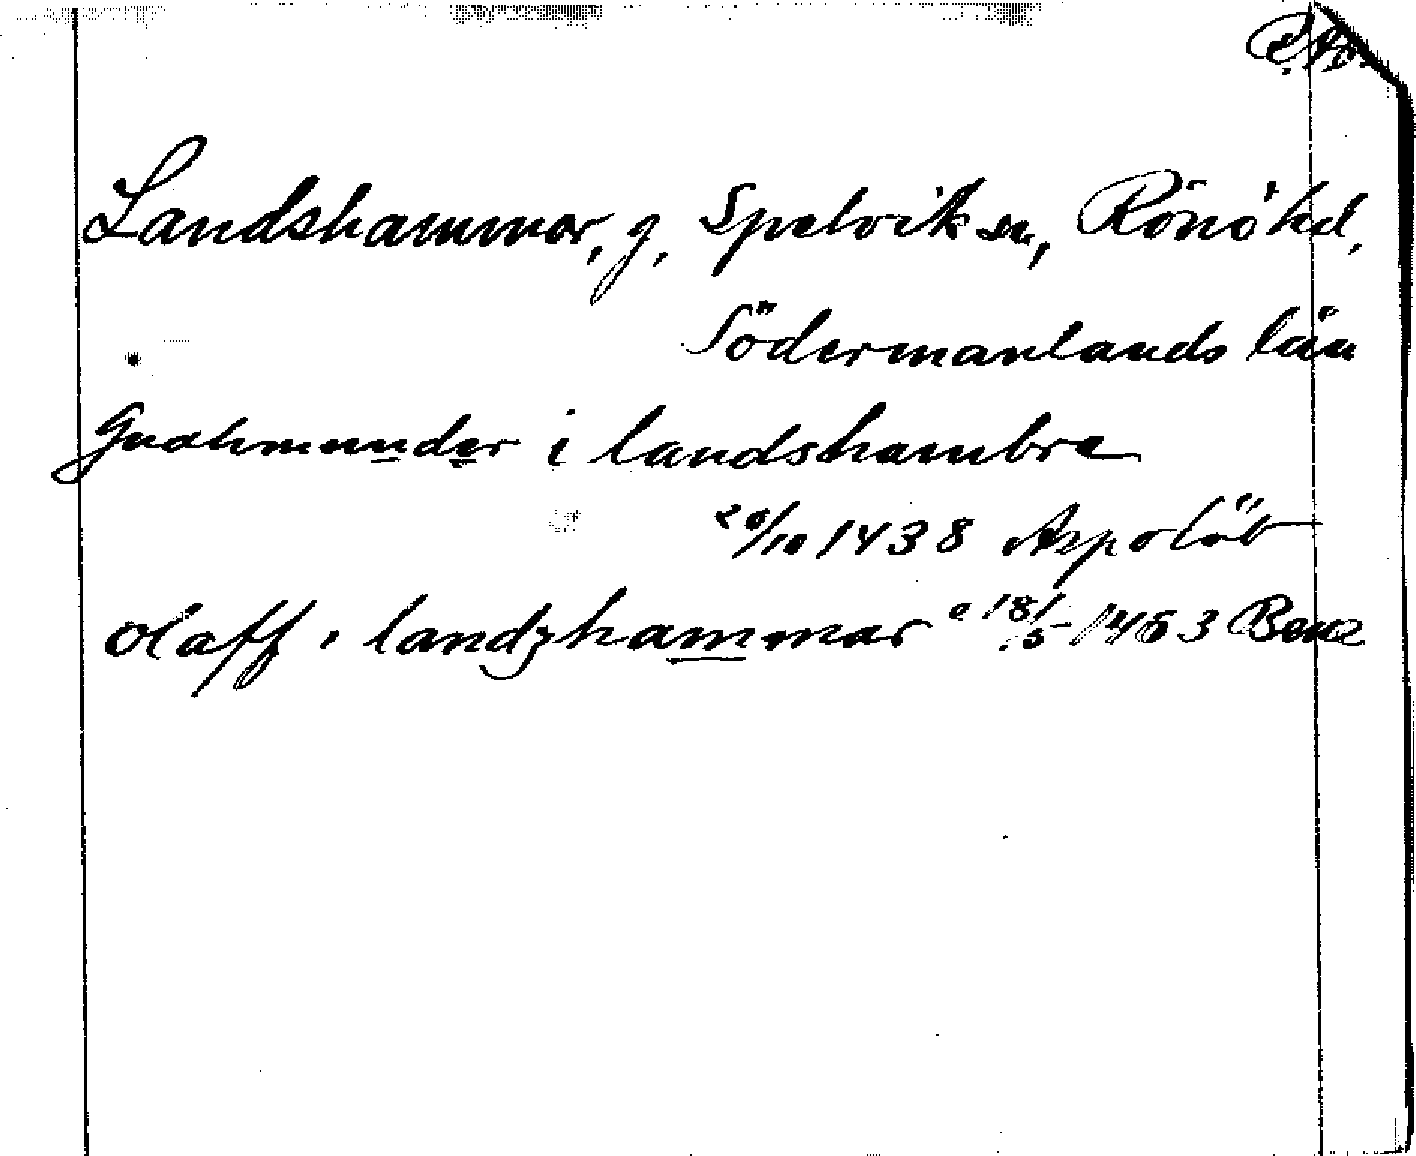 Landshammar, g, Spelvik sn, Rönö hd,
Södermanlands län
Gudhmunder i landshambre
20/10 1438 Aspolöt
olaff i landzhammar e 18/5 1463